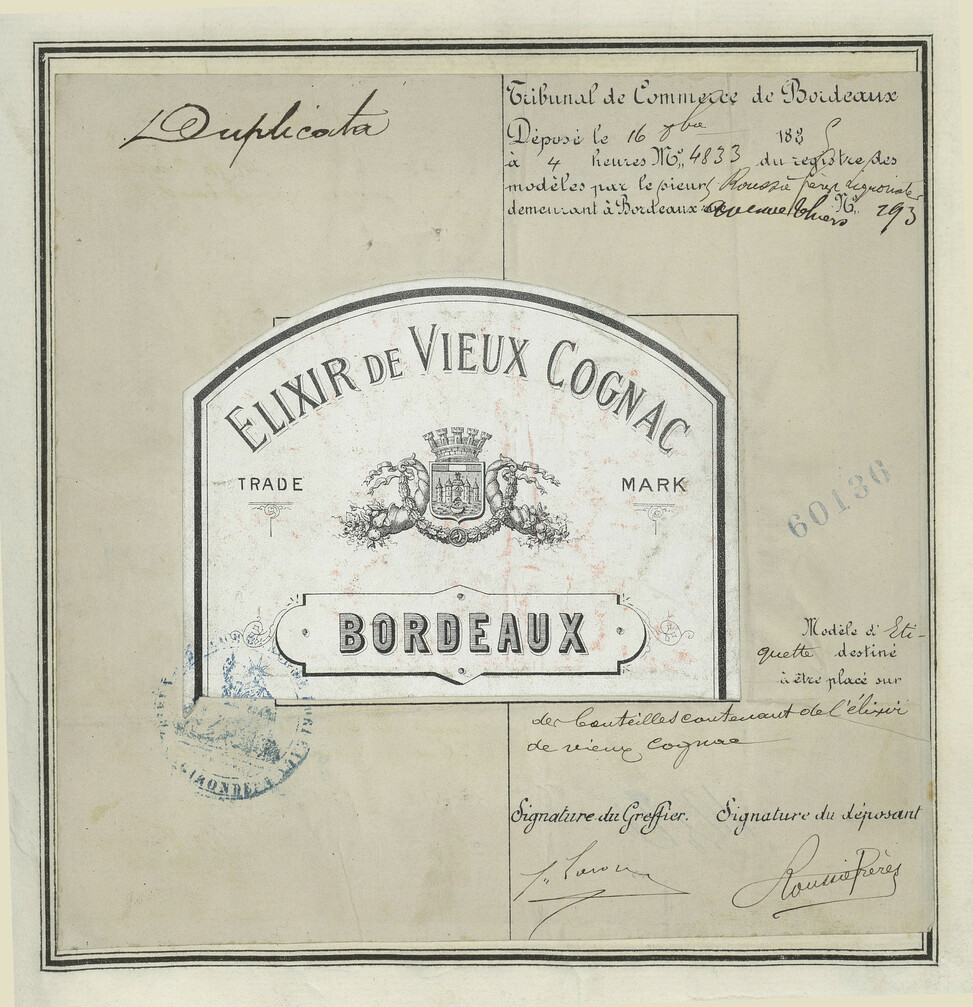 Duplicata
Tribunal de Commerce de Bordeaux
Déposé le 16 9bre 1885
à 4 heures Nº 4833 du registre des
modèles par le sieurs Roussie frères
demeurant à Bordeaux avenue Thiers Nº 293
ELIXIR DE VIEUX COGNAC
TRADE MARK
BORDEAUX
60130
Modèle d'Eti-
quette destiné
à être placé sur
des bouteilles contenant de l'élixir
de vieux Cognac
GIRONDE
Signature du Greffier. Signature du déposant
Roussie Frères